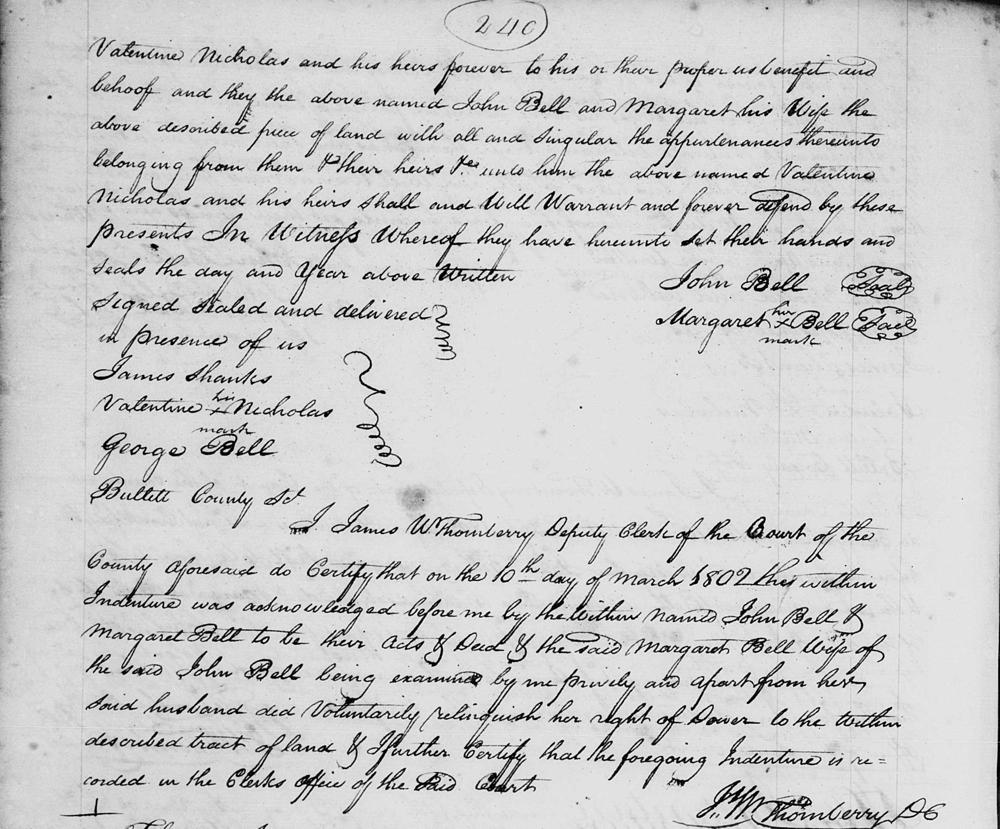 240
Valentine Nicholas and his heirs forever to his or their proper us benefit and
behoof and they the above named John Bell and Margaret his Wife the
above described piece of land with all and singular the appurtenances thereunto
belonging from them & their heirs &c. unto him the above named Valentine
Nicholas and his heirs shall and Will Warrant and forever defend by these
presents In Witness Whereof they have hereunto set their hands and
seals the day and Year above Written
John Bell Seal
signed sealed and delivered
Margaret her x mark Bell Seal
in presence of us
James Shanks
Valentine his x mark Nicholas
George Bell
Bullitt County Sct
I James W Thornberry Deputy Clerk of the Court of the
County aforesaid do Certify that on the 10th day of March 1802 this within
Indenture was acknowledged before me by the within named John Bell &
Margaret Bell to be their acts & Deed & the said Margaret Bell Wife of
the said John Bell being examined by me privily and apart from her
said husband did Voluntarily relinquish her right of Dower to the Within
described tract of land & I further Certify that the foregoing Indenture is re=
corded in the Clerks office of the said Court
J W Thornberry DC